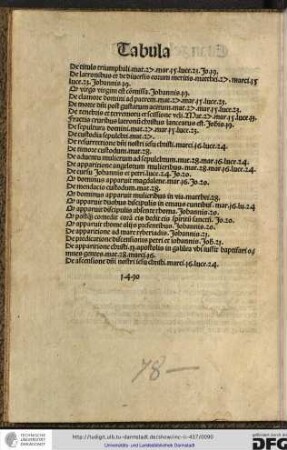 Tabula
De titulo triumphali. mat.27. mar.15. luce.23. Jo.19.
De latronibus et de diuersis eorum meritis. matthei.27. marci.15
luce.23. Johannis.19.
virgo virgini est comissa. Johannis.19.
De clamore domini ad patrem. mat.27. mar.15. luce.23.
De morte dni post gustatum acetum. mat.27. mar.15. luce.23.
De tenebris et terremotu et scissione veli. Mat.27. mar.15. luce
Fractis cruribus latronū christus lanceatus est. Johis.19.
De sepultura domini. mat.27. mar.15. luce.23.
De custodia sepulchri. mat.27.
De resurrectione dni nostri iesu christi. marci.16. luce.24.
De timore custodum. mar.28.
De aduentu mulierum ad sepulchrum. mat.28. mar.16. luce.24.
De apparitione angelorum mulieribus. mat.28. mar.16. luce.24.
De cursu Johannis et petri. luce.24. Jo.20.
De dominus apparuit magdalene. mar.16. Jo.20.
De mendacio custodum. mat.28.
De dominus apparuit mulieribus in via. matthei.28.
apparuit duobus discipulis in emaus euntibus. mar.16. lu.24
apparuit discipulis absente thoma. Johannis.20.
Jo.20.
apparuit thome alijs presentibus. Johannis.20.
De apparitione ad mare tyberiadis. Johannis.21.
De predicatione petri et iohannis. Joh.21.
De apparitione christi apostolis in galilea vbi iussit baptisari o
mnes gentes. mat.28. marci.16.
De ascensione dni nostri iesu christi. marci.16. luce.24.
1490
78 —
http://tudigit.ulb.tu-darmstadt.de/show/inc-ii-437/0090
Universitäts- und Landesbibliothek Darmstadt
DFG